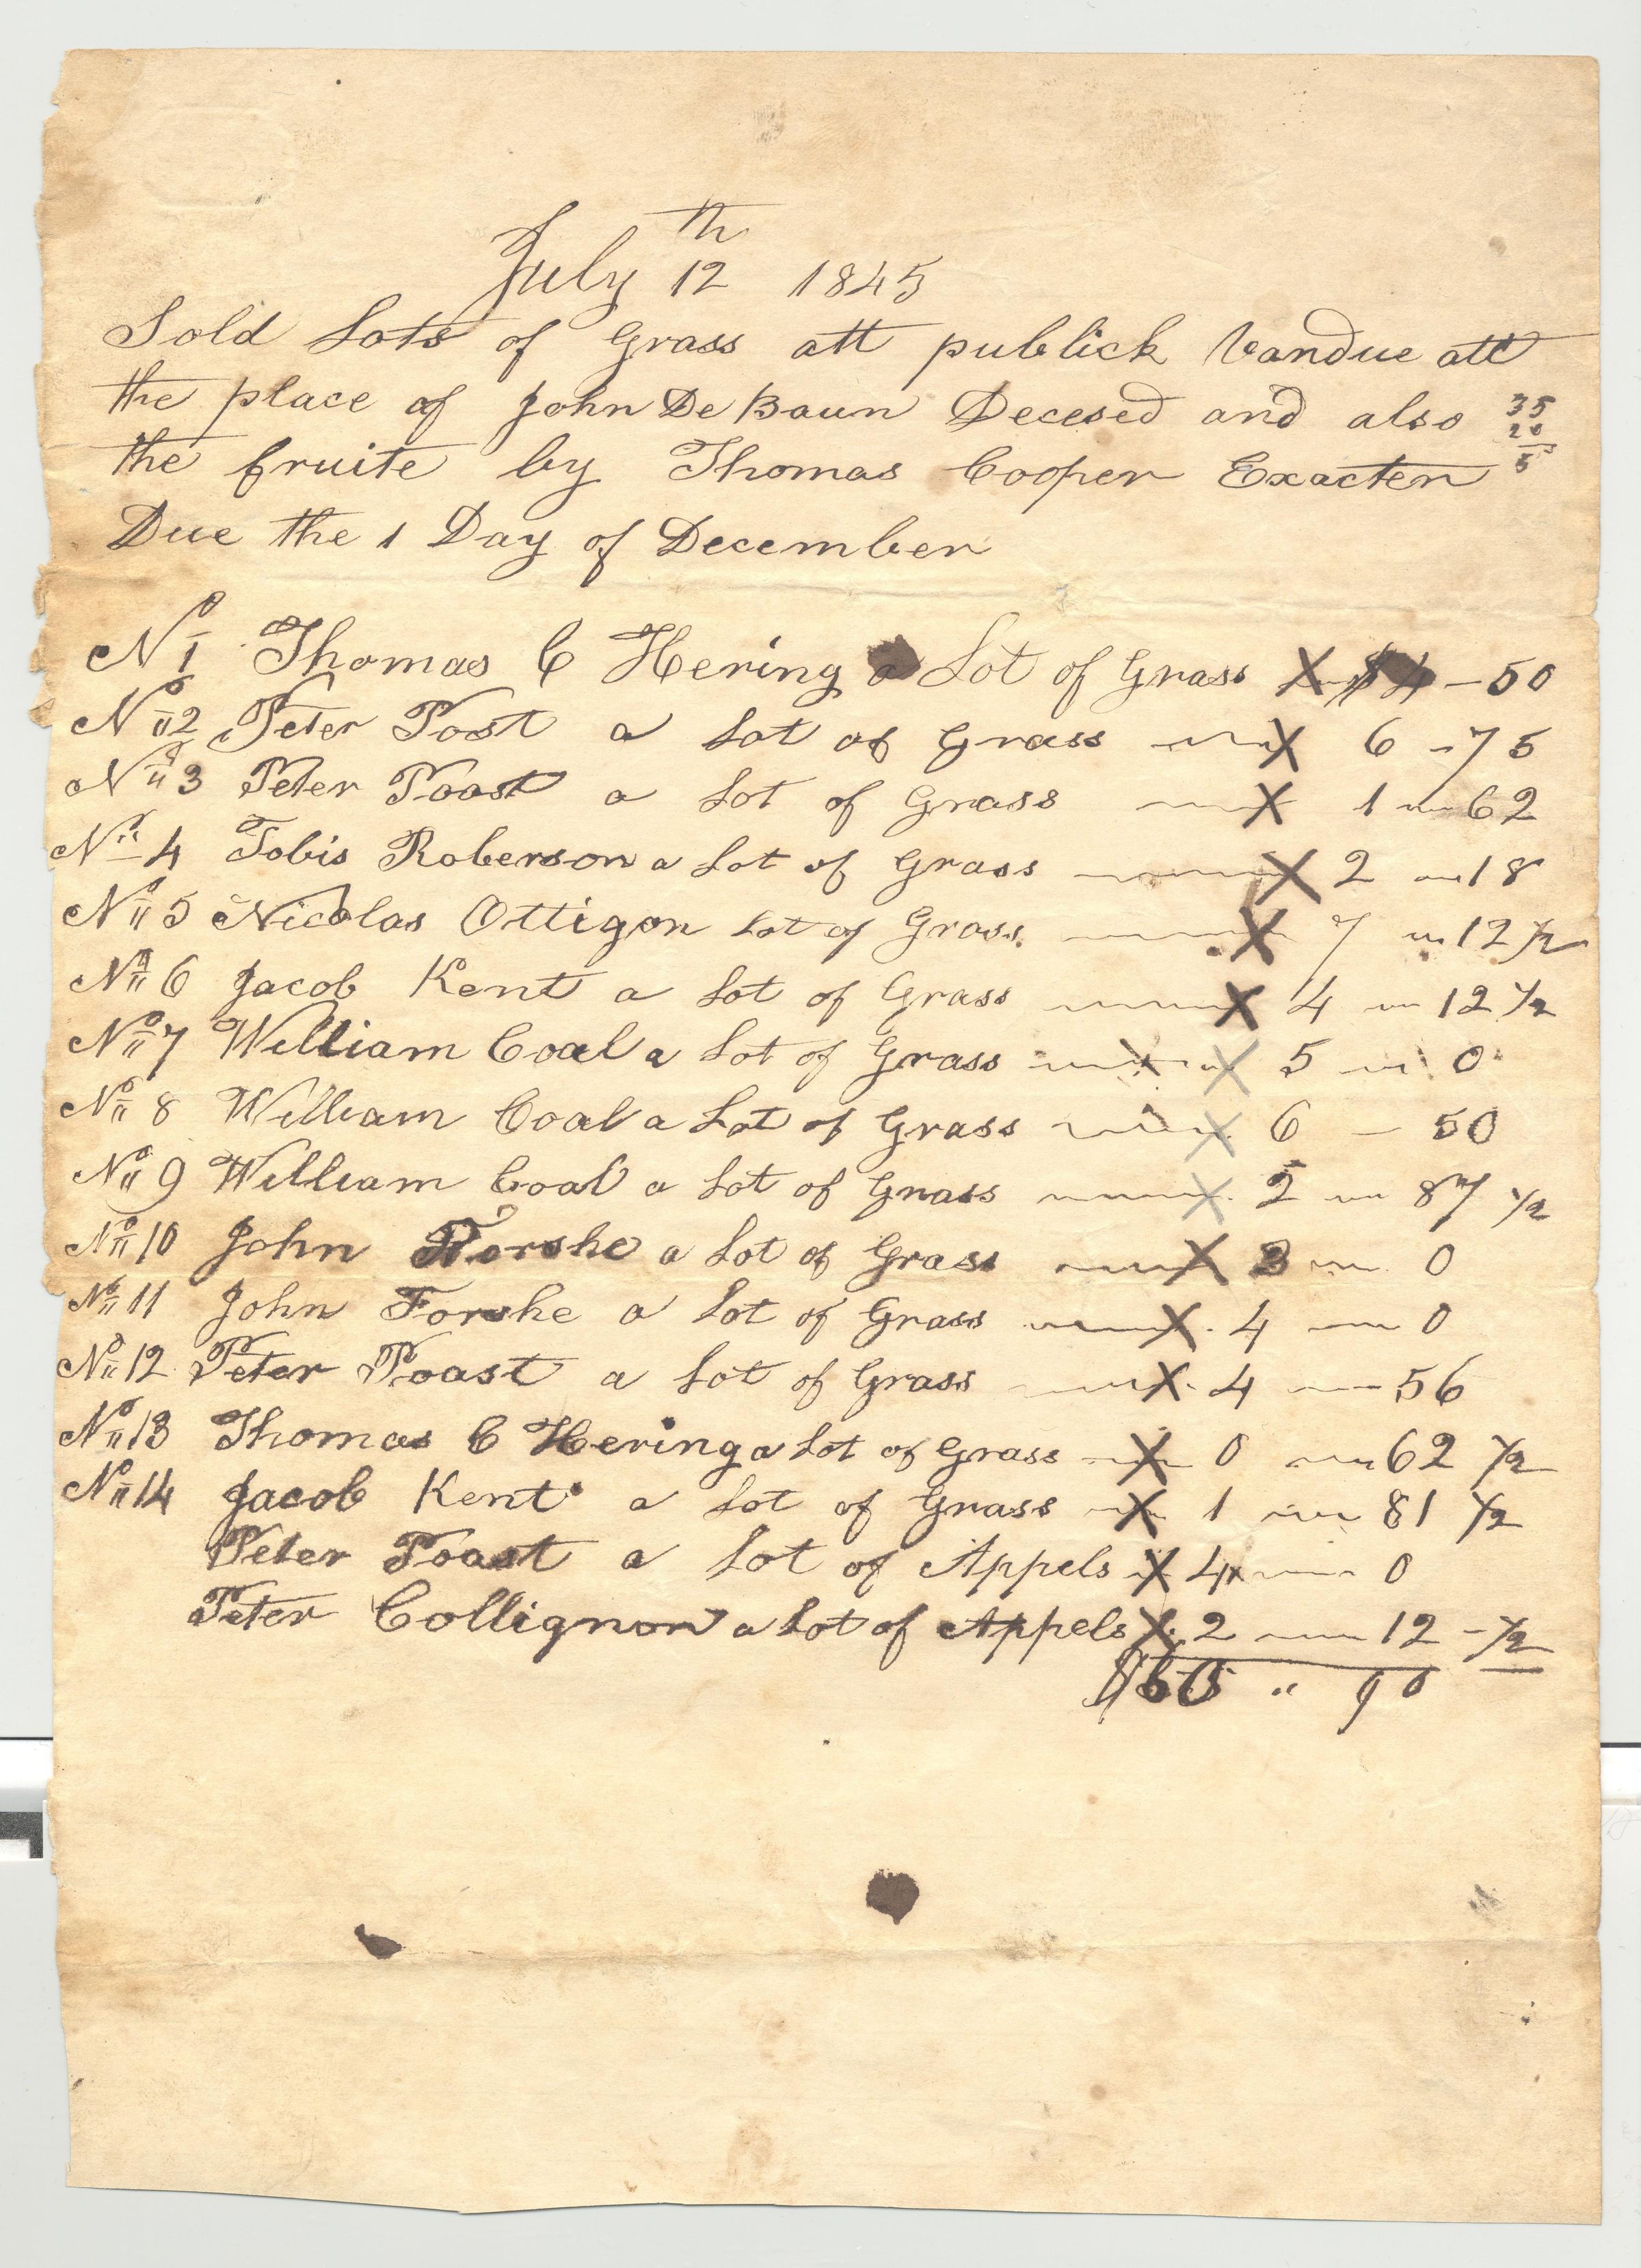 July 12th 1845
Sold Lots of Grass att publick Vandue att
the place of John De Baun Decesed and also
the fruite by Thomas Cooper Exacter
Due the 1 Day of December
35
20
5
No 1 Thomas C Hering a Lot of Grass X $4 - 50
No 2 Peter Post a Lot of Grass X 6 - 75
No 3 Peter Poast a Lot of Grass X 1 62
No 4 Tobis Roberson a Lot of Grass X 2 18
No 5 Nicolas Ottigon Lot of Grass X 7 12 1/2
No 6 Jacob Kent a Lot of Grass X 4 12 1/2
No 7 William Coal a Lot of Grass X 5 0
No 8 William Coal a Lot of Grass X 6 - 50
No 9 William Coal a Lot of Grass X 87 1/2
No 10 John Forshe a Lot of Grass X 3 0
No 11 John Forshe a Lot of Grass X 4 0
No 12 Peter Poast a Lot of Grass X 4 56
No 13 Thomas C Hering a Lot of Grass X 0 62 1/2
No 14 Jacob Kent a Lot of Grass X 1 81 1/2
Peter Poast a Lot of Appels X 4 0
Peter Collignon a Lot of Appels X 2 12 - 1/2
$60 " 90